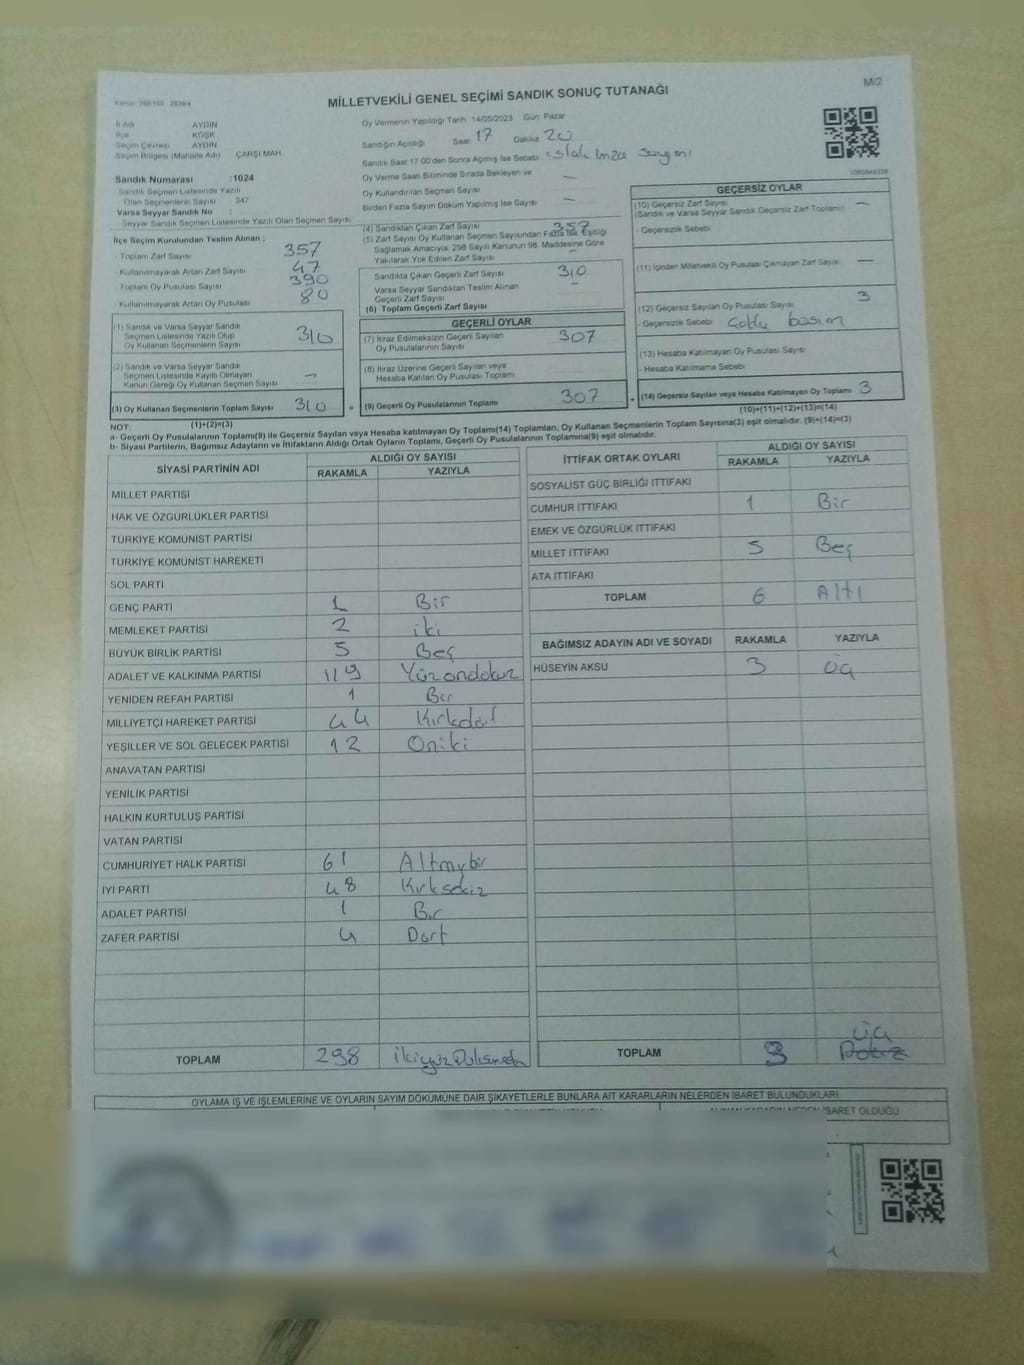 MİLLETVEKİLİ GENEL SEÇİMİ SANDIK SONUÇ TUTANAĞI
M/2
İl Adı AYDIN
İlçe KÖŞK
Seçim Çevresi AYDIN
Seçim Bölgesi (Mahalle Adı) ÇARŞI MAH
Oy Vermenin Yapıldığı Tarih 14/05/2023 Gün Pazar
Sandığın Açıldığı Saat 17 Dakika 20
Sandık Saat 17:00'den Sonra Açılmış İse Sebebi : ıslak imza sayımı
Oy Verme Saati Bitiminde Sırada Bekleyen ve
Oy Kullandırılan Seçmen Sayısı —
Birden Fazla Sayım Döküm Yapılmış İse Sayısı —
Sandık Numarası :1024
Sandık Seçmen Listesinde Yazılı
Olan Seçmenlerin Sayısı 347
Varsa Seyyar Sandık No :
Seyyar Sandık Seçmen Listesinde Yazılı Olan Seçmen Sayısı
İlçe Seçim Kurulundan Teslim Alınan ;
- Toplam Zarf Sayısı 357
- Kullanılmayarak Artan Zarf Sayısı 47
- Toplam Oy Pusulası Sayısı 390
- Kullanılmayarak Artan Oy Pusulası 80
(1) Sandık ve Varsa Seyyar Sandık
Seçmen Listesinde Yazılı Olup
Oy Kullanan Seçmenlerin Sayısı 310
(2) Sandık ve Varsa Seyyar Sandık
Seçmen Listesinde Kayıtlı Olmayan
Kanun Gereği Oy Kullanan Seçmen Sayısı —
(3) Oy Kullanan Seçmenlerin Toplam Sayısı 310
(1)+(2)=(3)
(4) Sandıktan Çıkan Zarf Sayısı 357
(5) Zarf Sayısı Oy Kullanan Seçmen Sayısından Fazla İse, Eşitliği
Sağlamak Amacıyla, 298 Sayılı Kanunun 98. Maddesine Göre
Yakılarak Yok Edilen Zarf Sayısı
Sandıkta Çıkan Geçerli Zarf Sayısı 310
Varsa Seyyar Sandıktan Teslim Alınan
Geçerli Zarf Sayısı —
(6) Toplam Geçerli Zarf Sayısı
GEÇERLİ OYLAR
(7) İtiraz Edilmeksizin Geçerli Sayılan
Oy Pusulalarının Sayısı 307
(8) İtiraz Üzerine Geçerli Sayılan veya
Hesaba Katılan Oy Pusulası Toplamı
= (9) Geçerli Oy Pusulalarının Toplamı 307
GEÇERSİZ OYLAR
(10) Geçersiz Zarf Sayısı —
(Sandık ve Varsa Seyyar Sandık Geçersiz Zarf Toplamı)
- Geçersizlik Sebebi
(11) İçinden Milletvekili Oy Pusulası Çıkmayan Zarf Sayısı —
(12) Geçersiz Sayılan Oy Pusulası Sayısı 3
- Geçersizlik Sebebi çoklu basım
(13) Hesaba Katılmayan Oy Pusulası Sayısı
- Hesaba Katılmama Sebebi
+ (14) Geçersiz Sayılan veya Hesaba Katılmayan Oy Toplamı 3
(10)+(11)+(12)+(13)=(14)
NOT:
a- Geçerli Oy Pusulalarının Toplamı(9) ile Geçersiz Sayılan veya Hesaba katılmayan Oy Toplamı(14) Toplamları, Oy Kullanan Seçmenlerin Toplam Sayısına(3) eşit olmalıdır. (9)+(14)=(3)
b- Siyasi Partilerin, Bağımsız Adayların ve İttifakların Aldığı Ortak Oyların Toplamı, Geçerli Oy Pusulalarının Toplamına(9) eşit olmalıdır.
SİYASİ PARTİNİN ADI ALDIĞI OY SAYISI
RAKAMLA YAZIYLA
MİLLET PARTİSİ
HAK VE ÖZGÜRLÜKLER PARTİSİ
TÜRKİYE KOMÜNİST PARTİSİ
TÜRKİYE KOMÜNİST HAREKETİ
SOL PARTİ
GENÇ PARTİ 1 Bir
MEMLEKET PARTİSİ 2 iki
BÜYÜK BİRLİK PARTİSİ 5 Beş
ADALET VE KALKINMA PARTİSİ 119 Yüzondokuz
YENİDEN REFAH PARTİSİ 1 Bir
MİLLİYETÇİ HAREKET PARTİSİ 44 Kırkdört
YEŞİLLER VE SOL GELECEK PARTİSİ 12 Oniki
ANAVATAN PARTİSİ
YENİLİK PARTİSİ
HALKIN KURTULUŞ PARTİSİ
VATAN PARTİSİ
CUMHURİYET HALK PARTİSİ 61 Altmışbir
İYİ PARTİ 48 Kırksekiz
ADALET PARTİSİ 1 Bir
ZAFER PARTİSİ 4 Dört
TOPLAM 298
İTTİFAK ORTAK OYLARI ALDIĞI OY SAYISI
RAKAMLA YAZIYLA
SOSYALİST GÜÇ BİRLİĞİ İTTİFAKI
CUMHUR İTTİFAKI 1 Bir
EMEK VE ÖZGÜRLÜK İTTİFAKI
MİLLET İTTİFAKI 5 Beş
ATA İTTİFAKI
TOPLAM 6 Altı
BAĞIMSIZ ADAYIN ADI VE SOYADI RAKAMLA YAZIYLA
HÜSEYİN AKSU 3 üç
üç
TOPLAM 3 Dokuz
OYLAMA İŞ VE İŞLEMLERİNE VE OYLARIN SAYIM DÖKÜMÜNE DAİR ŞİKAYETLERLE BUNLARA AİT KARARLARIN NELERDEN İBARET BULUNDUKLARI
İBARET OLDUĞU